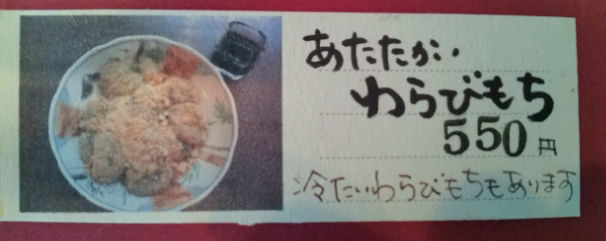 あたたかい
わらびもち
550円
冷たいわらびもちもあります